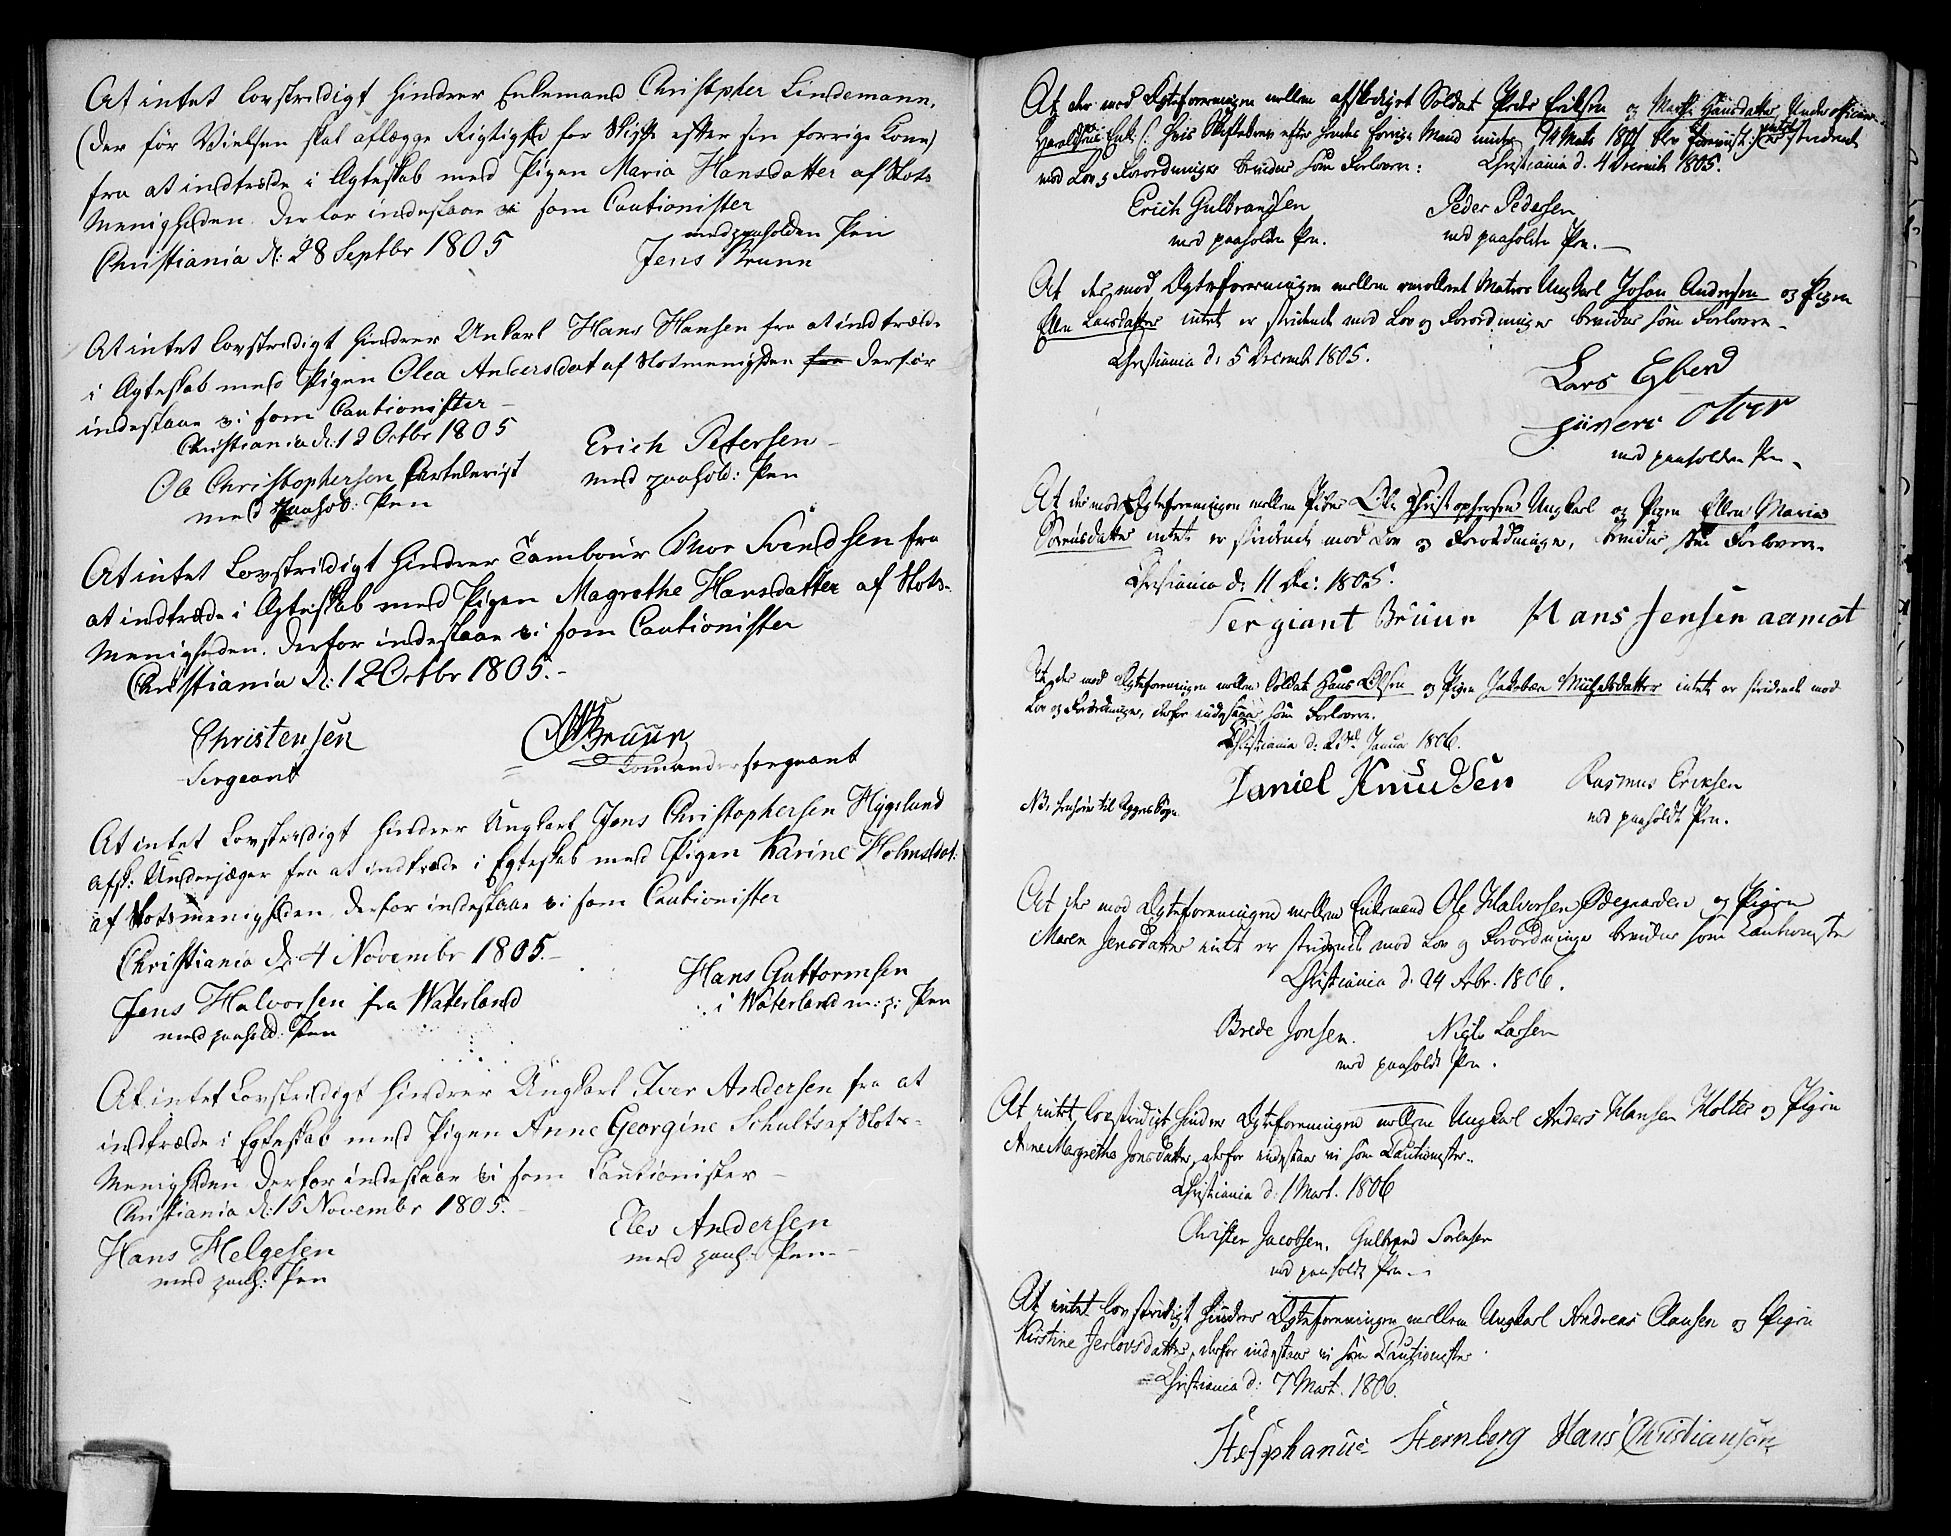 At intet lovstridigt hindrer Enkemand Christopher Lindemann,
(der før Vielsen skal aflægge Rigtighed for Skifte efter sin forrige Kone)
fra at indtræde i Ægteskab med Pigen Maria Hansdatter af Slots
Menigheden. Derfor indestaae vi som Cautionister
Christiania d: 28 Septbr 1805
med paaholden Pen
Jens Bruun
At intet lovstridigt hindrer Unkarl Hans Hansen fra at indtræde
i Ægteskab med Pigen Olea Andersdat af Slotmenigheden fra derfor
indestaae vi som Cautionister
Christiania d: 12 Octbr 1805
Ole Christophersen
med paahol: Pen
Erich Petersen
med paahold: Pen
At intet Lovstridigt hindrer Tambour Thor Svendsen fra
at indtræde i Ægteskab med Pigen Magrethe Hansdatter af Slots-
Menigheden. derfor indestaae vi som Cautionister
Christiania d: 12 Octbr 1805.-
Christensen
Sergeant
Bruun
Comandersergeant
At intet Lovstridigt hindrer Ungkarl Jens Christophersen
afsk: Underjæger fra at indtræde i Egteskab med Pigen Karine Holmsdat:
af Slotsmenigheden derfor indestaae vi som Cautionister
Christiania d: 4 Novembr 1805.-
Jens Halvorsen fra Waterland
med paahold: Pen
Hans Guttormsen
i Waterland m: p: Pen
At intet Lovstridigt hindrer Ungkarl Iver Andersen fra at
indtræde i Egteskab med Pigen Anne Georgine Schults af Slots-
Menigheden derfor indestaae vi som Cautionister -
Christiania d: 15 Novembr 1805.-
Hans Helgesen
med paah: Pen
Eles Andersen
med paah: Pen
At der mod Ægteforeningen mellem afskediget Soldat Peder Eriksen og Marthe Hansdatter Underofficeer
Enke (: hvis Skiftebrev efter hendes forrige Mand under 14 Marts 1801 blev foreviist :) intet er stridende
med Lov og Forordninger bevidner som Forlovere: Christiania d. 4 Decemb 1805.
Erich Gulbrandsen
med paaholden Pen.
Peder Pedersen
med paaholden Pen.
At der mod Ægteforeningen mellem enrolleret Matros Ungkarl Johan Andersen og Pigen
Ellen Larsdatter intet er stridende med Lov og Forordninger bevidner som Forlovere
Christiania d: 5 Decemb 1805.
Lars
med paaholden Pen
At der mod Ægteforeningen mellem Piber Ole Christophersen Ungkarl og Pigen Ellen Maria
Sørensdatter intet er stridende mod Lov og Forordninger, bevidner som Forlovere
Christiania d: 11 Dec: 1805.
Sergiant Bruun Hans Jensen aamot
At der mod Ægteforeningen mellem Soldat Hans Olsen og Pigen Jakobea Michelsdatter intet er stridende mod
Lov og Forordninger, derfor indestaaer som Forlovere.
Christiania d: Januar 1806.
NB: henhører til Sogn
Daniel Knudsen
Rasmus Eriksen
med paaholdt Pen.
At der mod Ægteforeningen mellem Enkemand Ole Halvorsen Ødegaarden og Pigen
Maren Jensdatter intet er stridende mod Lov og Forordninger bevidner som Cautionister
Christiania d. 24 Febr. 1806.
Brede Jonsen. Niels Larsen
med paaholdt Pen.
At intet lovstridigt hindrer Ægteforeningen mellem Ungkarl Anders Hansen Holter og Pigen
Anne Margrethe Jonsdatter, derfor indestaaer vi som Cautionister.
Christiania d: 1 Mart. 1806
Christen Jacobsen. Gulbrand Sørensen
med paaholdt Pen
At intet lovstridigt hindrer Ægteforeningen mellem Ungkarl Andreas Clausen og Pigen
Kirstine Jerlovsdatter, derfor indestaaer vi som Cautionister
Christiania d: 7 Mart. 1806.
Stephanus Sternberg Hans Christiansøn